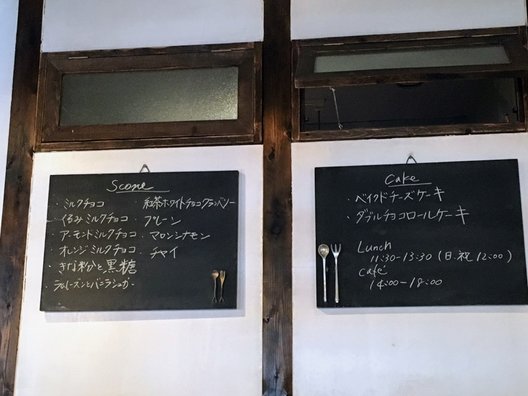 Scone
・ミルクチョコ
・くるみミルクチョコ
・アーモンドミルクチョコ
・オレンジミルクチョコ
・きな粉と黒糖
・ラムレーズンとバニラシュガー
紅茶ホワイトチョコクランベリー
・プレーン
・マロンシナモン
・チャイ
Cake
・ベイクドチーズケーキ
・ダブルチョコロールケーキ
Lunch
11:30-13:30 (日.祝 12:00)
Café
14:00-18:00